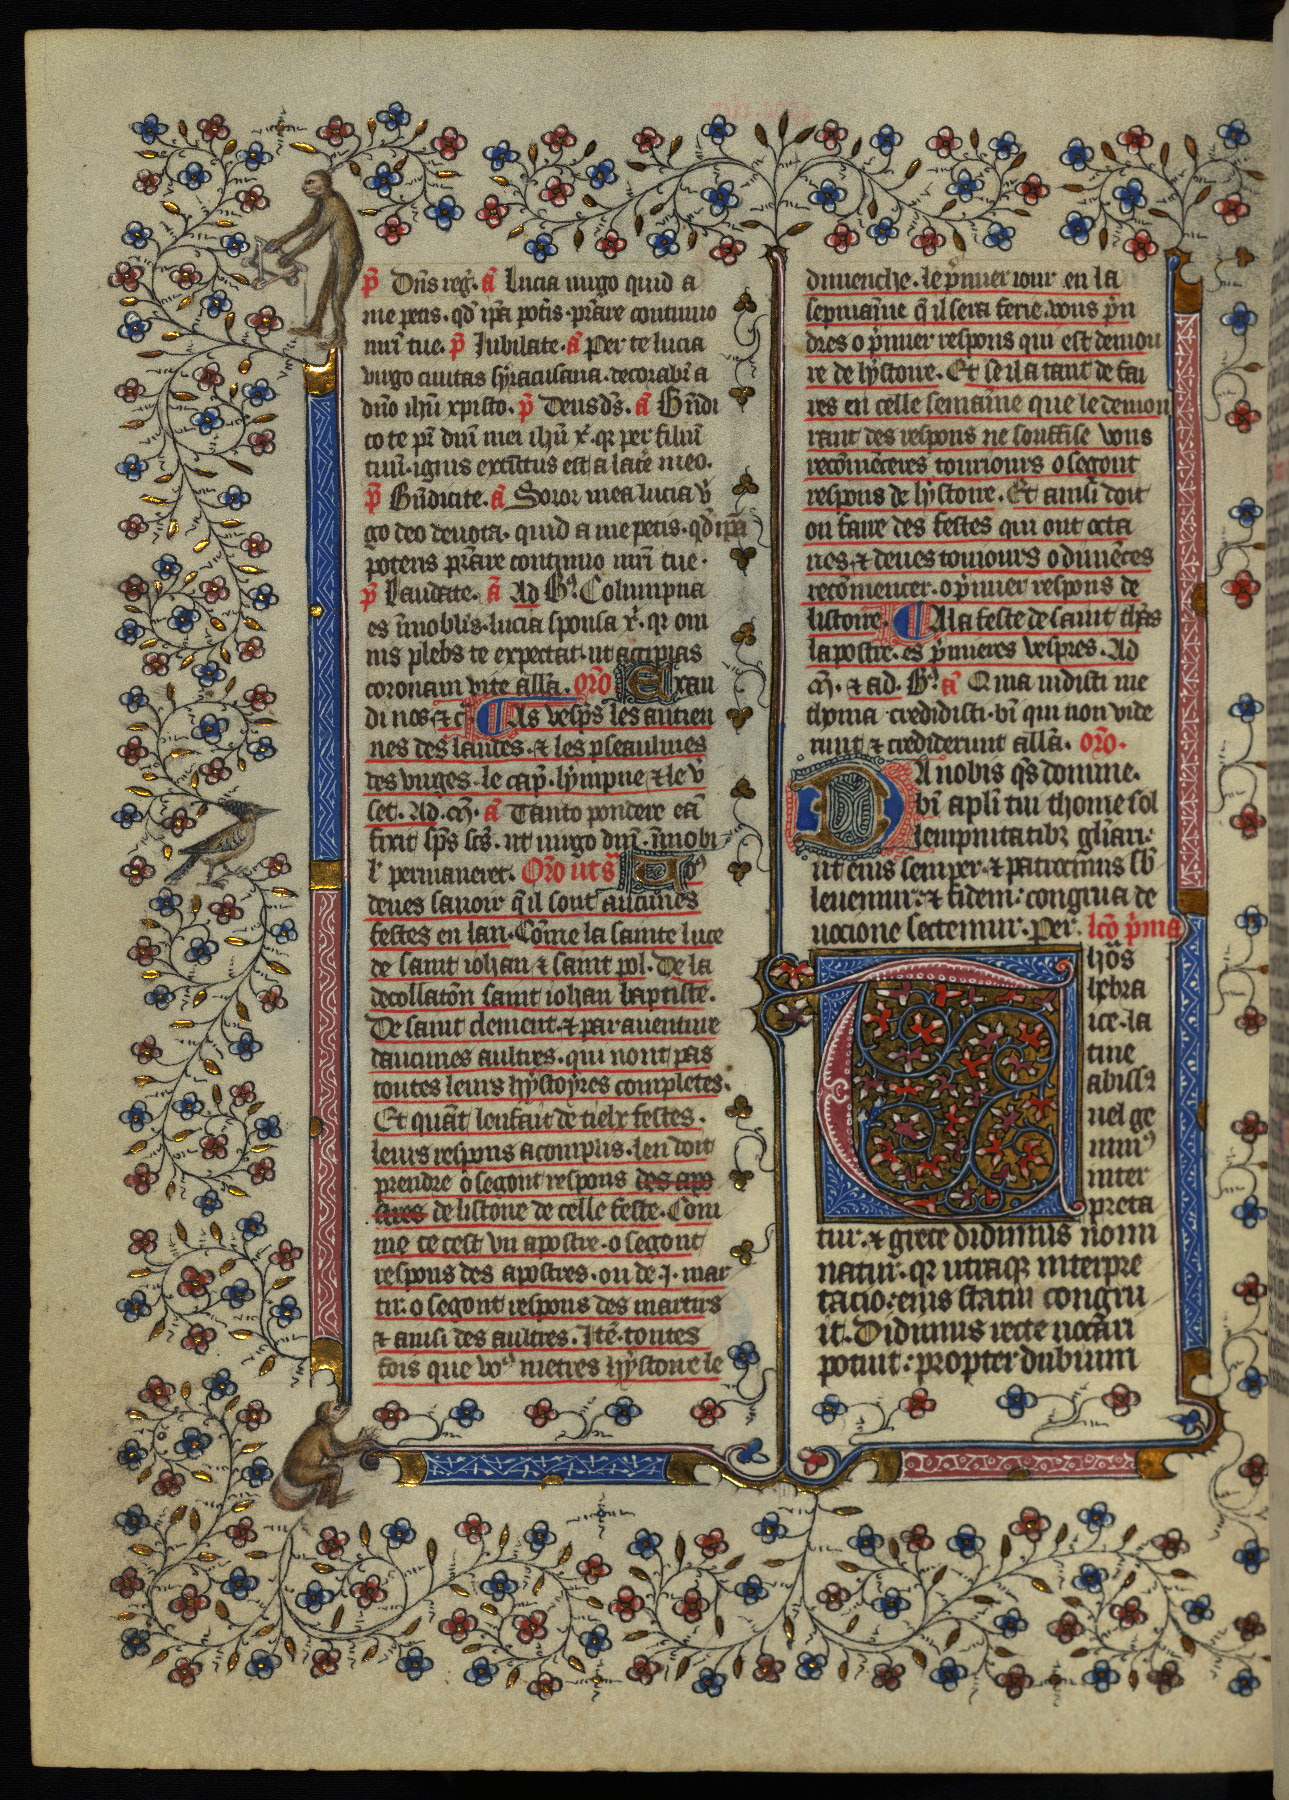 p̄ Dn̄s reg̃. ā Lucia uirgo quid a
me petis. qd̄ ip̄a potis. p̄stare continuo
mr̄i tue. p̄ Iubilate. ā Per te lucia
uirgo ciuitas syracusana. decorabit̃ a
dn̄o ih̄u xpisto. p̄ Deus ds̄. ā Bn̄di
co te pr̄ dn̄i mei ih̄u x̄. qr per filiū
tuū. ignis extin̄tus est a laterē meo.
p̄ Bn̄dicite. ā Soror mea lucia v̄
go deo deuota. quid a me petis. qd̄ ip̄a
potens p̄stare continuo mr̄i tue.
p̄ Laudate. ā Ad Bꝰ. Columpna
es īmobilis. lucia sponsa x̄. qr om
nis plebs te expectat. ut accipias
coronam vite all̄a. or̄o Exau
di nos. & c̄. As vesp̄s les antien
nes des laudes. & les pseaulmes
des virges. le cap̄. lympne & le v̄
set. Ad. m̄. ā Tanto pondere eā
fixit sp̄s sc̄s. ut uirgo dn̄i. īmobi
l' permaneret. Or̄o ut s̄ Uoꝰ
deues sauoir q̄ il sont aucunes
festes en lan. Cōme la sainte luce
de saint iohan & saint pol. De la
decollatōn saint iohan baptiste.
De saint clement. & par auenture
daucunes aultres. qui nont pas
toutes leurs hystoyres completes.
Et quāt len fait de tielx festes.
leurs respons acomplis. len doit
prendre o segont respons des apo
stres de listoire de celle feste. Com
me ce cest un apostre. o segont
respons des apostres. ou de .i. mar
tir. o segont respons des martirs
& ainsi des aultres. Itē. toutes
fois que voꝰ metres hystoire le
dimenche. le p̄mier iour en la
sepmaīne q̄ il sera ferie. vous p̄n
dres o p̄mier respons qui est demou
re de hystoire. Et se il a tant de fai
res en celle semaīne que le demou
rant des respons ne souffise vous
recōmenceres touriours o segont
respons de hystoire. Et ainsi doit
on faire des festes qui ont octa
nes. & deues toujours o dimēces
recōmencer. o p̄mier respons de
listoire. A la feste de saint thōs
lapostre. es p̄mieres vespres. Ad
m̄. & ad. Bꝰ. ā Quia uidisti me
thoma credidisti. bt̄i qui non vide
runt & crediderunt all̄a. or̄o.
DA nobis qs̄ domine.
bt̄i apl̄i tui thome sol
lempnitatibꝫ glīari:
ut eius semper. & patrocinus sb̄
leuemur: & fidem: congrua de
uocione sectemur. Per. lc̄o p̄ma
Thōs
hebra
ice. la
tine
abissꝰ
uel ge
minꝰ
inter
preta
tur. & grece didimus nomi
natur. qr utraqꝫ interpre
tacio: eius statui congru
it. Didimus recte uocari
potuit: propter dubium